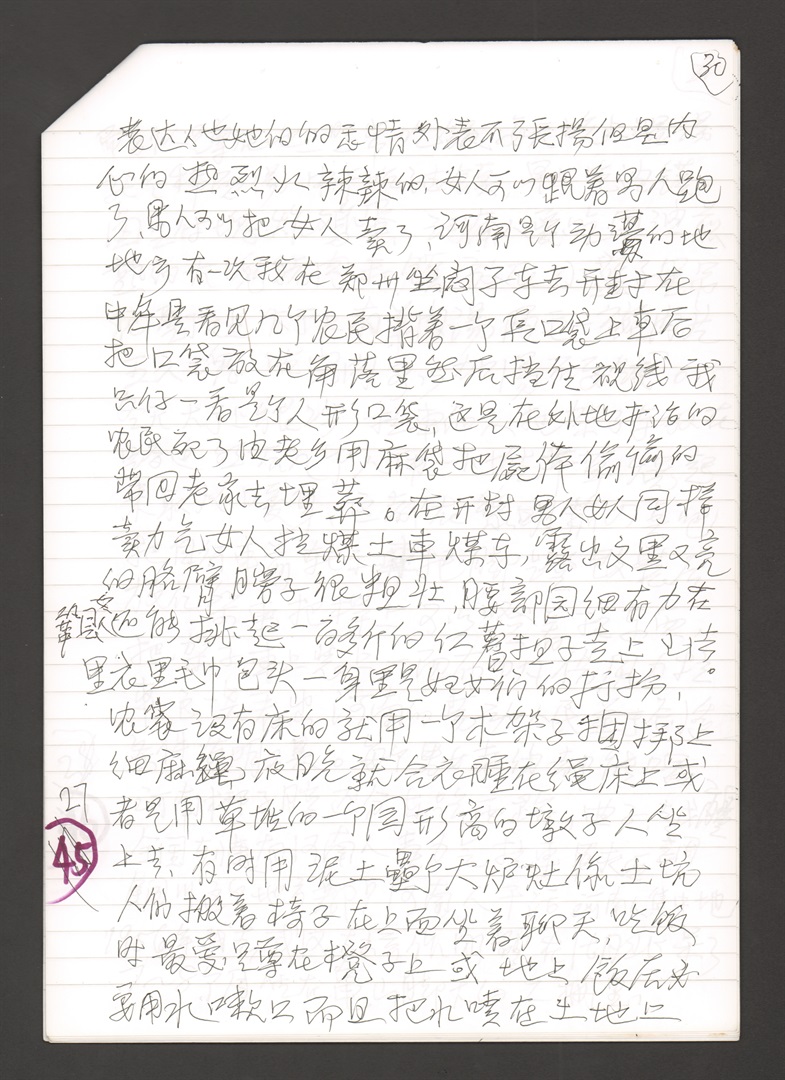 30
表达他她们的感情外表不张扬但是内
心的热烈火辣辣的,女人可以跟着男人跑
了,男人可以把女人卖了,河南是个动荡的地
地方有一次我在郑州坐闷子车去开封在
中牟县看见几个农民揹着一个长口袋上車后
把口袋放在角落里然后挡住视线我
只仔一看是个人形口袋,这是在外地弃治的
农民死了由老乡用麻袋把屍体偷偷的
带回老家去埋葬。在开封男人女人同样
卖力气女人拉煤土車煤车,露出又黑又亮
的胳臂膀子很粗壮,腰部园细有力在
鞏县还能挑起一百多斤的红薯担子走上山去。
黑衣黑毛巾包头一身黑是妇女们的打扮,
农家没有床的就用一个木架子捆绑上
细麻繩夜晚就合衣睡在绳床上或
者是用草堆的一个园形高的墩子人坐
27
45
上去,有时用泥土壘个大炉灶像土坑
人们搬着椅子在上面坐着聊天,吃饭
时最爱是蹲在櫈子上或地上饭后必
要用水嗽口而且把水喷在土地上